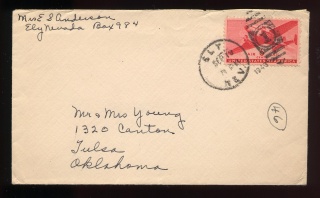 Mrs E S Anderson
Ely Nevada Box 984
ELY
NEV.
Mr & Mrs Young
1320 Canton
Tulsa
Oklahoma
46